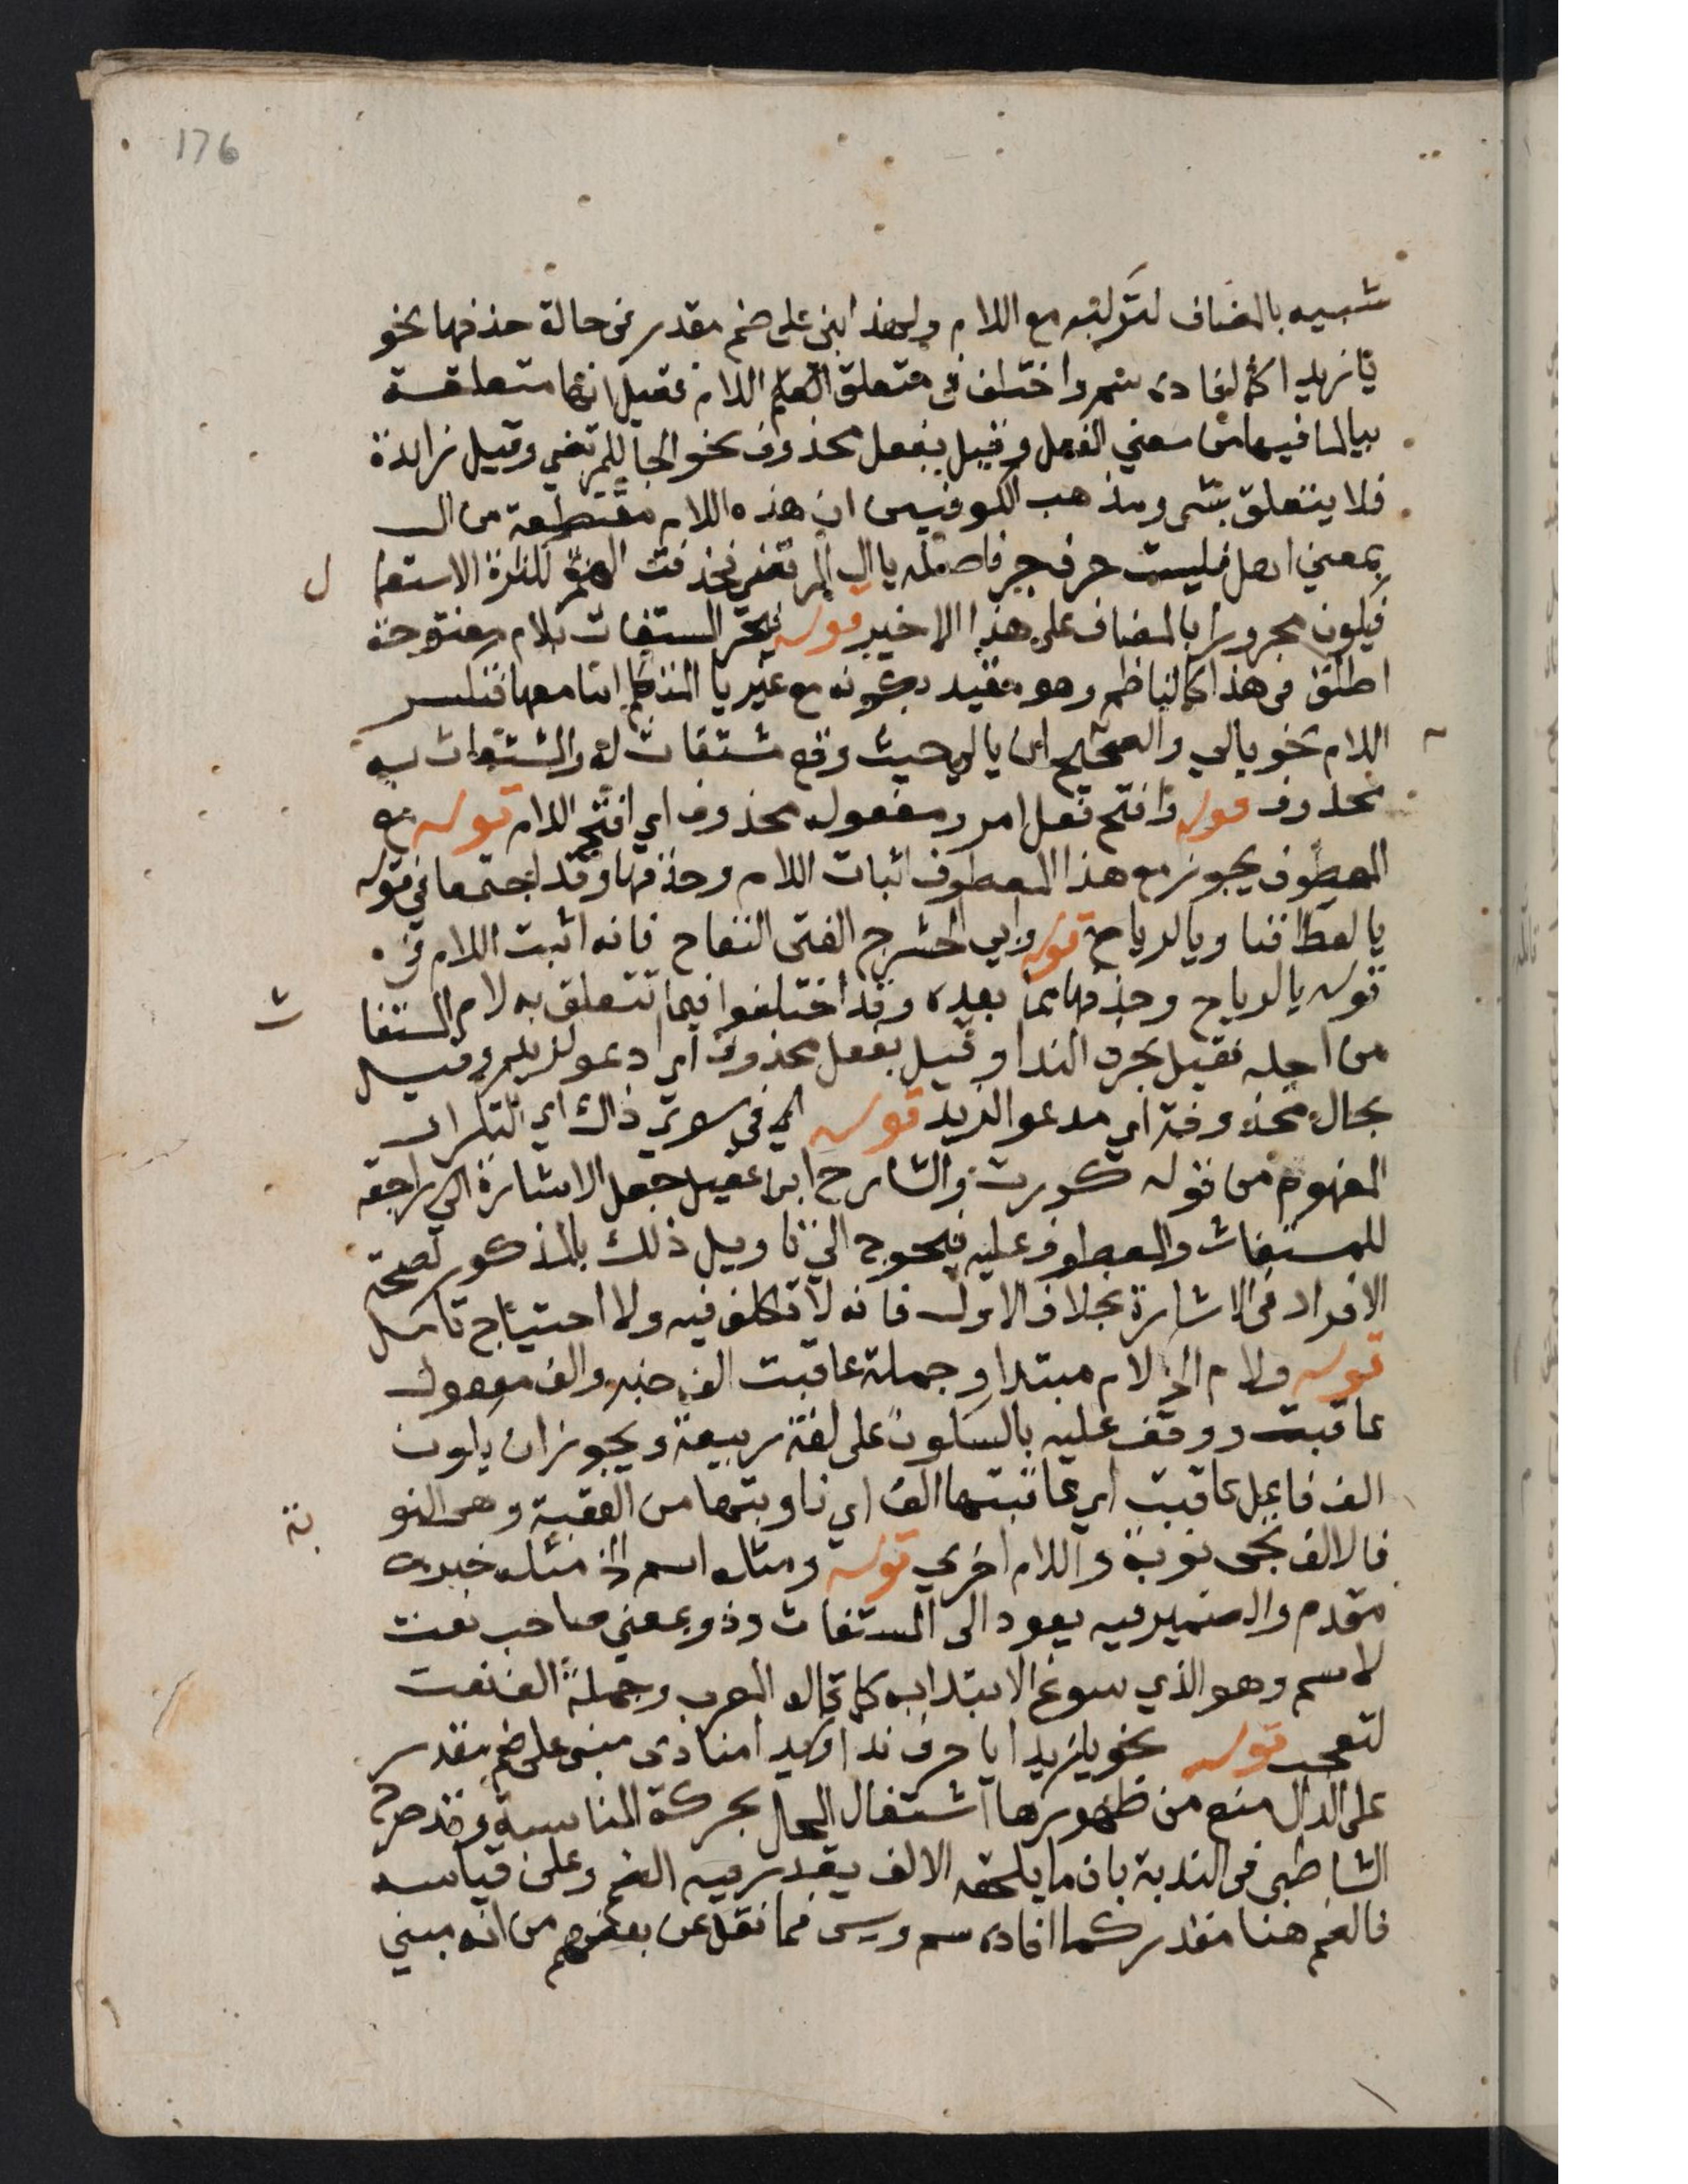 176
شبيه بالمضاف لتركبه مع اللام ولهذا ابني على ضم مقدر في حالة حذفها نحو
يا زيدا كما افاده سم واختلف في متعلق اللام فقيل انها متعلقة
بيا لما فيها من معني الفعل وقيل بفعل محذوف نحو الجأ للمرتضي وقيل زايدة
فلا يتعلق بشي ومذهب الكوفيين ان هذه اللام مقتطعة من ال
بمعني اهل فليست حرف جر فاصله يا ال المرتضي فحذفت الهمزة لكثرة الاستعمال
فيكون مجرورا بالمضاف على هذا الاخير قوله فيجر المستغاث بلام مفتوحة
اطلق في هذا كالناظم وهو مقيد بكونه مع غير يا المتكلم اما معها فتكسر
اللام نحو يالي والصحيح ان يا لي حيث وقع مستغاث له والمستغاث به
محذوف قوله وافتح فعل امر ومفعوله محذوف اي افتح اللام قوله مع
المعطوف يجوز مع هذا المعطوف اثبات اللام وحذفها وقد اجتمعا في قوله
يا لعطافنا ويا لرياح قوله وابي الحشرج الفتى النفاح فانه اثبت اللام في
قوله يا لرياح وحذفها مما بعده وقد اختلفوا فيما تتعلق به لام المستغاث
من اجله فقيل بحرف الندا وقيل بفعل محذوف اي ادعو لزيد وقيل
بحال محذوفة اي مدعوا لزيد قوله وفي سوى ذاك اي التكرار
المفهوم من قوله كررت والشارح ابن عقيل جعل الاشارة راجعة
للمستغاث والمعطوف عليه فيحوج الي تاويل ذلك بالمذكور لصحة
الافراد في الاشارة بخلاف الاول فانه لا تكلف فيه ولا احتياج تامل
قوله ولام الخ لام مبتدا وجملة عاقبت الف خبر والف مفعول
عاقبت ووقف عليه بالسكون على لغة ربيعة ويجوز ان يكون
الف فاعل عاقبت اي عاقبتها الف اي ناوبتها من العقبة وهي النوبة
فالالف تجى نوبة واللام اخري قوله ومثله اسم الخ مثله خبر
مقدم والضمير فيه يعود الى المستغاث وذو بمعني صاحب نعت
لاسم وهو الذي سوغ الابتدا به كما قاله المعرب وجملة الف نعت
لتعجب قوله نحو يا زيدا يا حرف ندا وزيدا منادى مبني على ضم مقدر
على الدال منع من ظهورها اشتغال المحل بحركة المناسبة وقد صرح
الشاطبي في الندبة بان ما يلحقه الالف يقدر فيه الضم وعلى قياسه
فالضم هنا مقدر كما افاده سم ويس فما نقل عن بعضهم من انه مبني